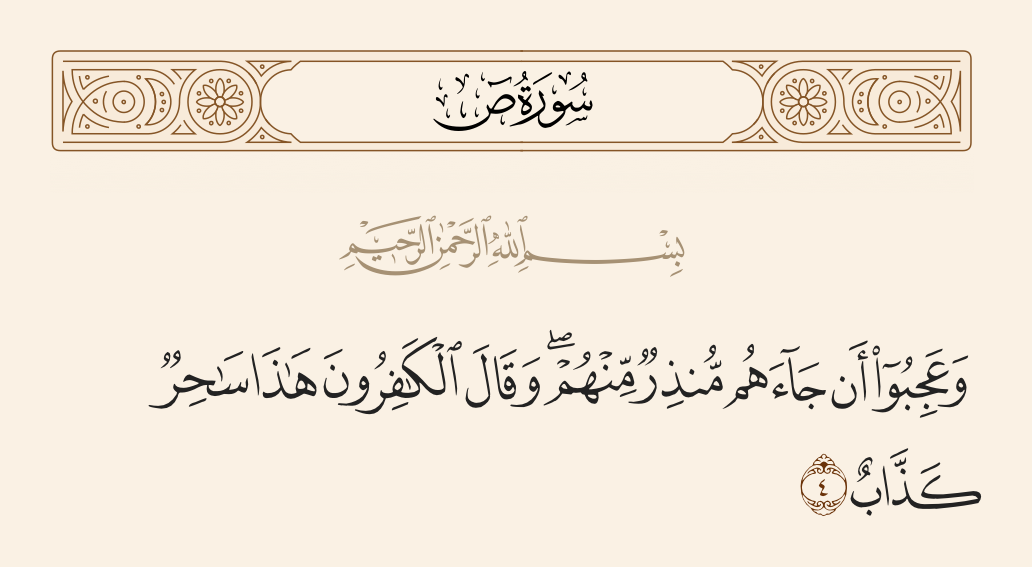 سُورَةُ صٓ
بِسْمِ ٱللَّهِ ٱلرَّحْمَٰنِ ٱلرَّحِيمِ
وَعَجِبُوٓا۟ أَن جَآءَهُم مُّنذِرٌ مِّنْهُمْ ۖ وَقَالَ ٱلْكَٰفِرُونَ هَٰذَا سَٰحِرٌ
كَذَّابٌ ٤